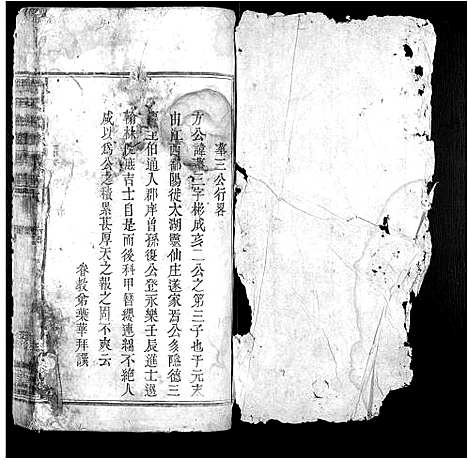 奉三公行畧
方公諱奉三字彬成亥二公之第三子也于元末
由江西鄱陽徙太湖靈仙庄遂家焉公多隱德三
王伯通入郡庠曾孫復公登永樂壬辰進士選
翰林庶吉士自是而後科甲簪纓連綿不絕人
咸以為公之積累甚厚天之報之固不爽云
眷教弟葉華拜譔